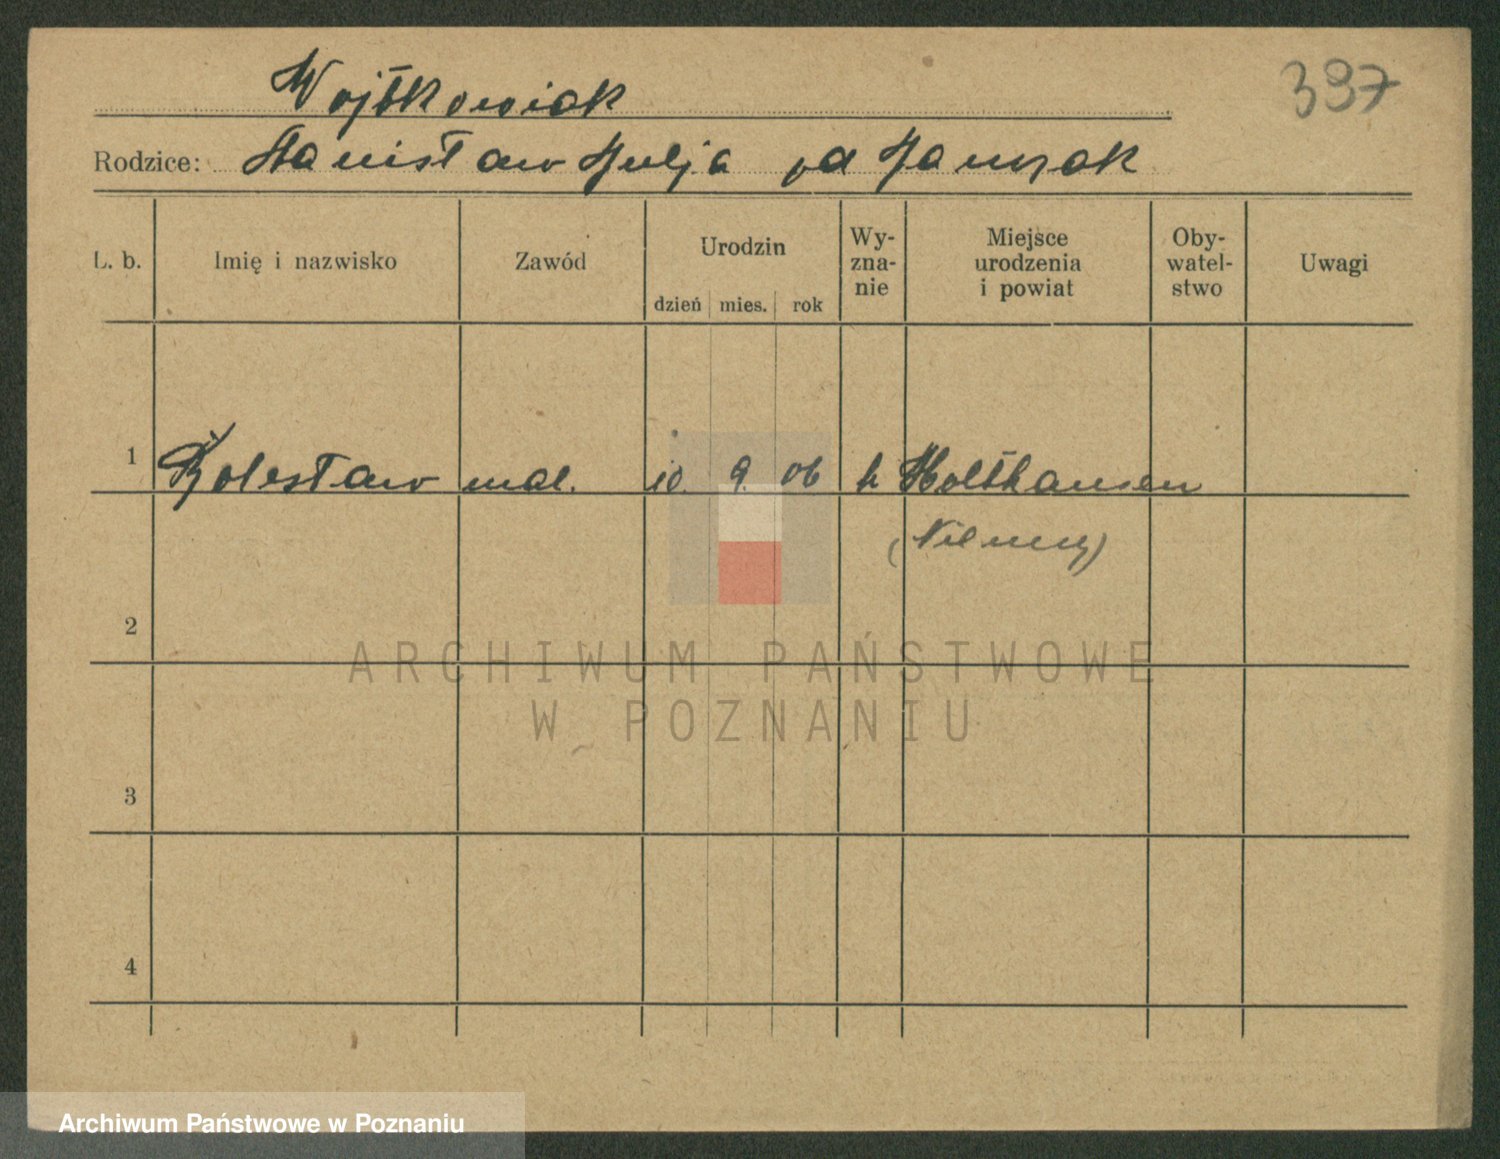 Wojtkowiak 337
Rodzice: Stanisław Julja zd Janczak
L. b. Imię i nazwisko Zawód Urodzin dzień mies. rok Wy-zna-nie Miejsce urodzenia i powiat Oby-watel-stwo Uwagi
1 Bolesław mal. 10. 9. 06 k Holthausen
(Niemcy)
2
ARCHIWUM PAŃSTWOWE
W POZNANIU
3
4
Archiwum Państwowe w Poznaniu